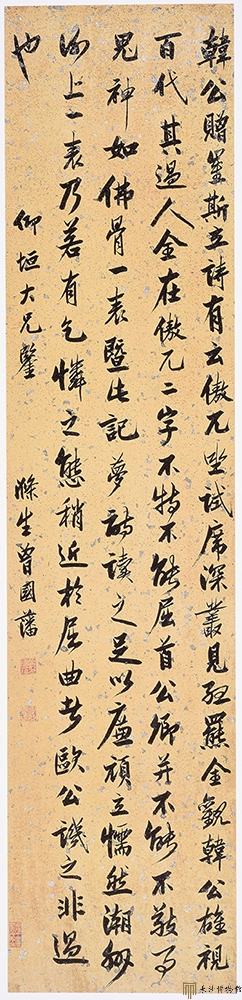 韓公贈崔斯立詩有云傲兀坐試席深叢見孤羆余觀韓公雄視
百代其過人全在傲兀二字不特不能屈首公卿并不能不敬事
鬼神如佛骨一表暨此記夢詩讀之足以廉頑立懦然潮州
謝上一表乃若有乞憐之態稍近於屈曲者歐公譏之非過
也
仰垣大兄鑒 滌生曾國藩
長沙博物館